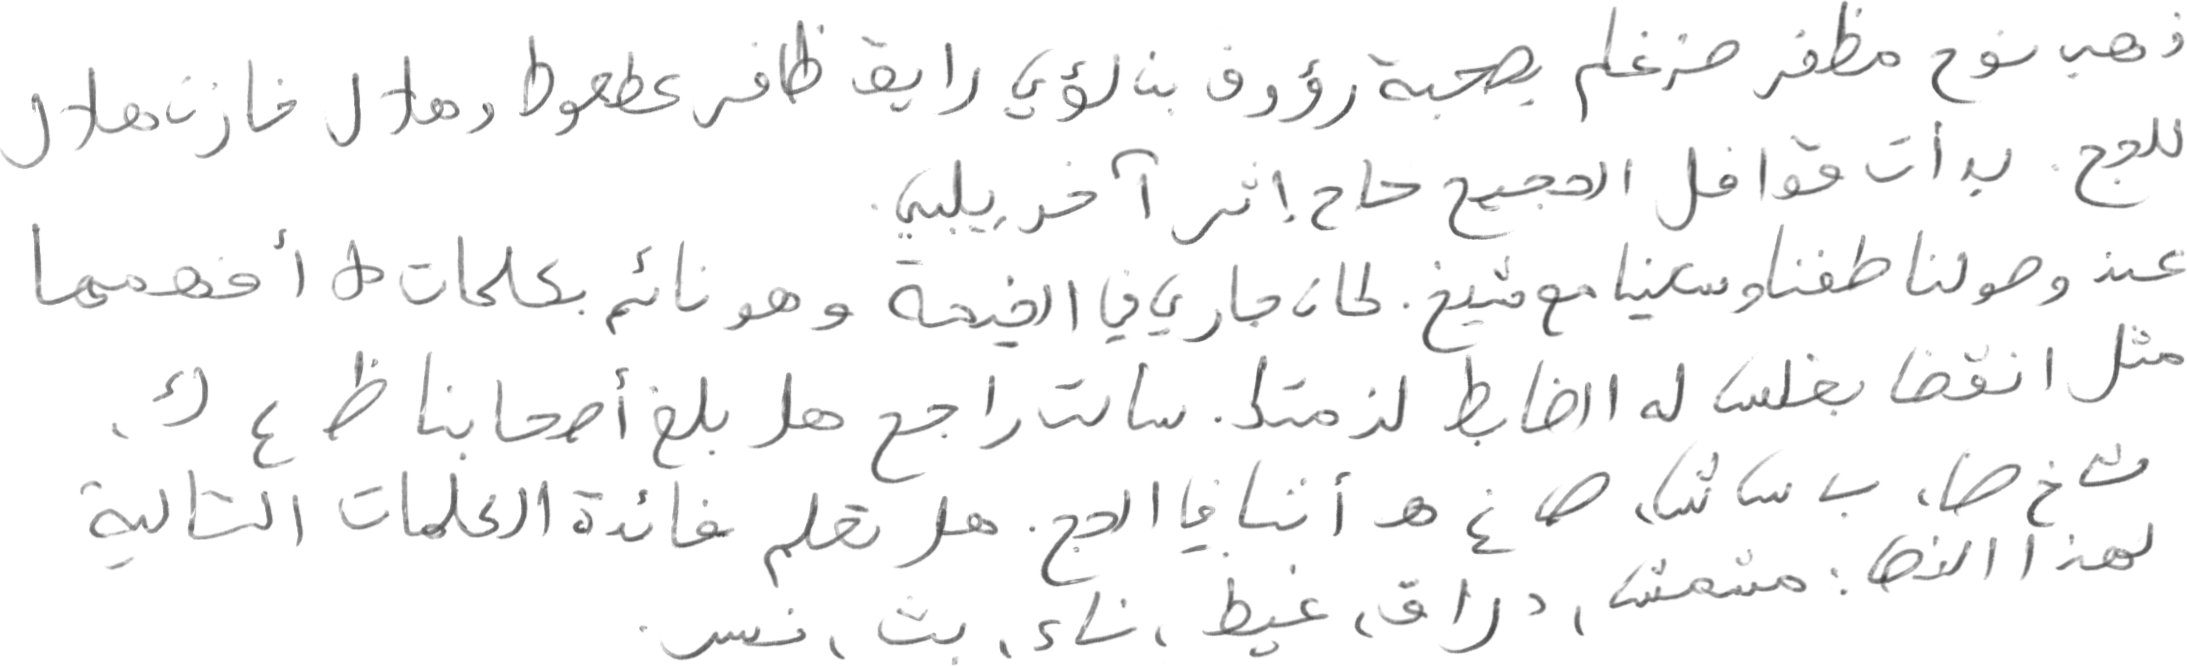 ذهب نوح مظفر ضرغام بصحبة رؤوف بن لؤي رايق ظافر عطعوط وهلال خازن هلال
للحج. بدأت قوافل الحجيج حاج إثر آخر يلبي.
عند وصولنا طفنا وسعينا مع شيخ. كان جاري في الخيمة وهو نائم بكلمات لا أفهمها
مثل انقض بغلس له الضابط لزمتك. سألت راجع هل بلغ أصحابنا ظ ع ك،
ث خ ض، ب س ش، ص غ هـ أثنا في الحج. هل تعلم فائدة الكلمات التالية
لهذا النص: مشمش، دراق، غيظ، ناء، بث، نسر.